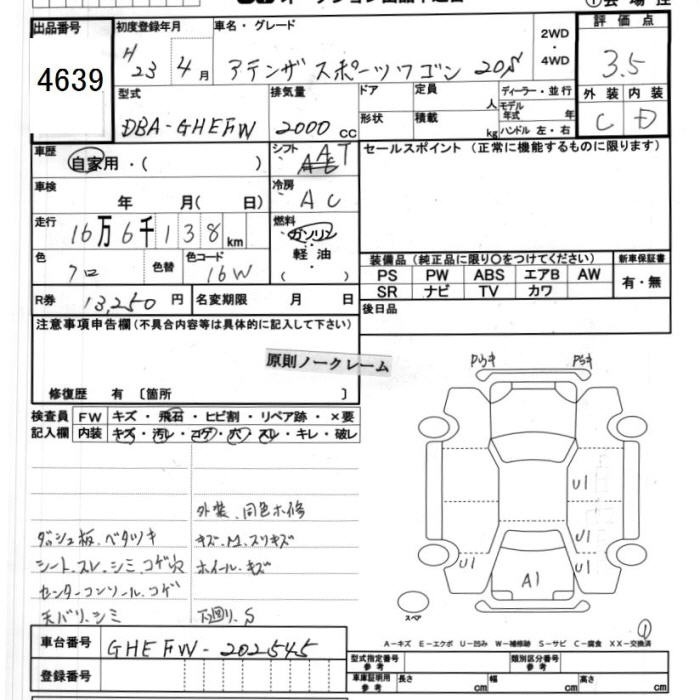 出品番号 初度登録年月 車名・グレード 2WD・4WD 評価点
4639 H23 4月 アテンザスポーツワゴン 20S 3.5
型式 排気量 ドア 定員 人 ディーラー・並行 外装 内装
モデル年式 年
DBA-GHEFW 2000cc 形状 積載 kg ハンドル 左・右 C D
車歴 シフト セールスポイント（正常に機能するものに限ります）
自家用・( ) AT
車検 冷房
年 月( 日) AC
走行 燃料
16万6千138km ガソリン
色 色替 色コード 軽油 装備品（純正品に限り○をつけてください） 新車保証書
クロ 16W ( ) PS PW ABS エアB AW 有・無
SR ナビ TV カワ
R券 13,250円 名変期限 月 日 後日品
注意事項申告欄(不具合内容等は具体的に記入して下さい)
原則ノークレーム
修復歴 有〔箇所 〕
検査員 FW キズ・飛石・ヒビ割・リペア跡・×要
記入欄 内装 キズ・汚レ・コゲ・穴・スレ・キレ・破レ
外装、同色ホ修
ダッシュ板、ベタツキ キズ、M、スリキズ
シート、スレ、シミ、コゲ穴 ホイール、キズ
センターコンソール、コゲ
天バリ、シミ 下廻リ、S
U1
U1
U1 U1
A1
スペア
①
A-キズ E-エクボ U-凹み W-補修跡 S-サビ C-腐食 XX-交換済
車台番号 GHEFW-202545 型式指定番号 参考 類別区分番号 参考
登録番号 車庫証明用 参考 長さ cm 幅 cm 高さ cm